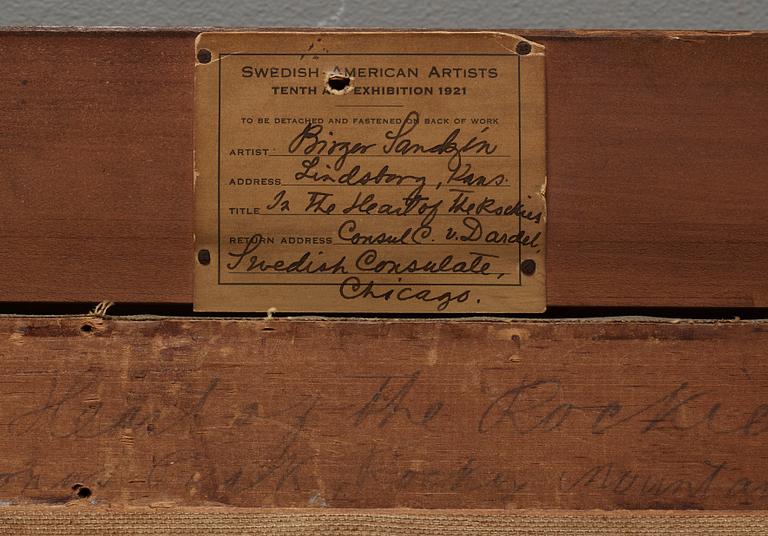 SWEDISH-AMERICAN ARTISTS
TENTH EXHIBITION 1921
TO BE DETACHED AND FASTENED ON BACK OF WORK
ARTIST Birger Sandzén
ADDRESS Lindsborg, Kans.
TITLE In The Heart of The Rockies
RETURN ADDRESS Consul C. v. Dardel,
Swedish Consulate,
Chicago.
Heart of the Rockie
Rocky Mountai